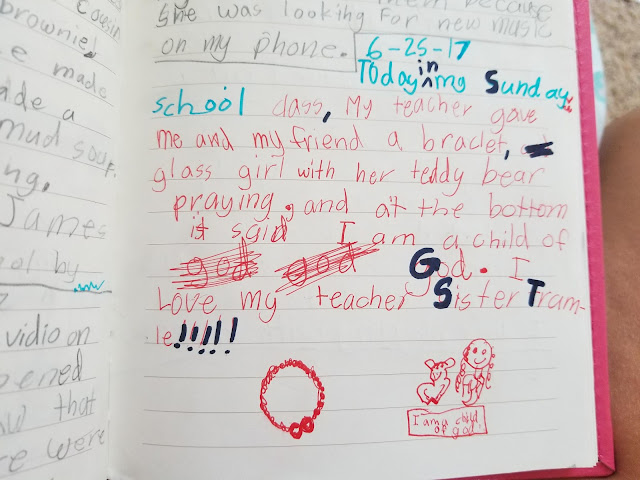 cousin
brownie
e made
ade a
mud soup.
ng.
James
ol by
vidio on
pened
ow that
re were
them because
She was looking for new music
on my phone.
6-25-17
Today in my Sunday
school class, My teacher gave
me and my friend a braclet,
glass girl with her teddy bear
praying, and at the bottom
it said I am a child of
god god God. I
Love my teacher Sister Tram-
le!!!!!
I am a child
of god.